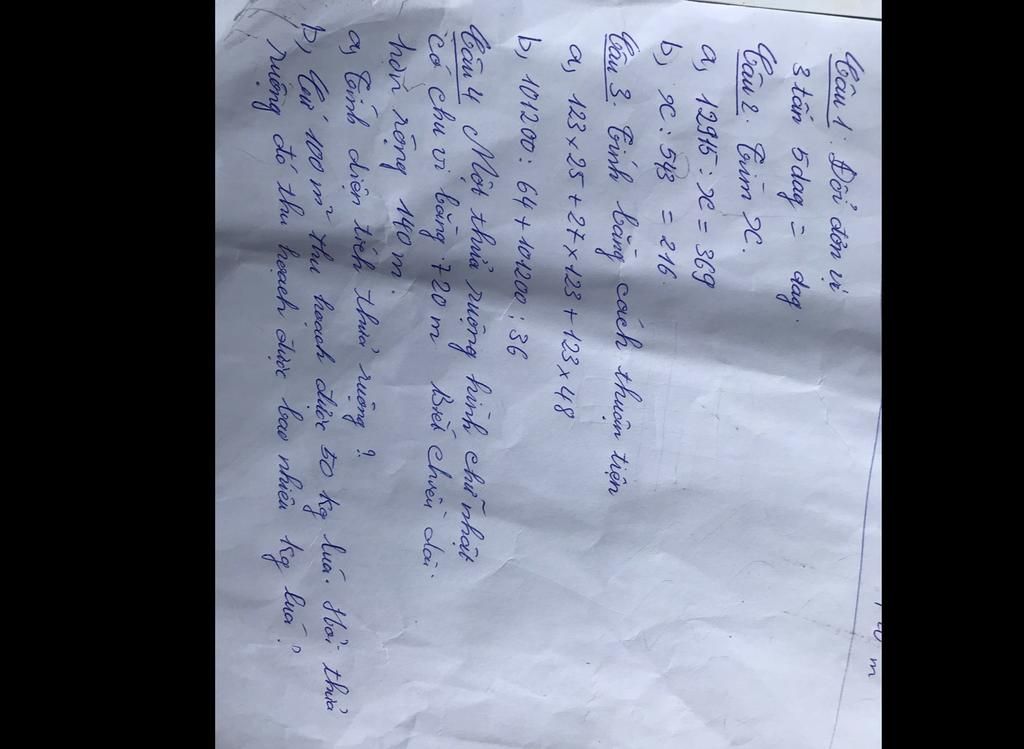 Câu 1: Đổi đơn vị
3 tấn 5dag = dag.
Câu 2. Tìm x.
a, 12915 : x = 369
b, x : 548 = 216.
Câu 3. Tính bằng cách thuận tiện
a, 123 x 25 + 27 x 123 + 123 x 48
b, 101200 : 64 + 101200 : 36
Câu 4 Một thửa ruộng hình chữ nhật
có chu vi bằng 720 m Biết chiều dài
hơn rộng 140 m.
a, Tính diện tích thửa ruộng ?
b, Cứ 100 m² thu hoạch được 50 kg lúa. Hỏi thửa
ruộng đó thu hoạch được bao nhiêu kg lúa ?
m